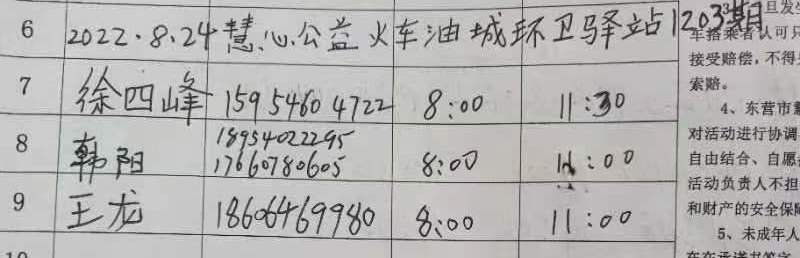 6 2022.8.24慧心公益火车油城环卫驿站1203期
7 徐四峰 15954604722 8:00 11:30
8 韩阳 18954022295 17660780605 8:00 11:00
9 王龙 18606469980 8:00 11:00
旦发生
车搭乘者认可只
接受赔偿，不得
索赔。
4、东营市慧
对活动进行协调
自由结合、自愿
活动负责人不担
和财产的安全保障
5、未成年人